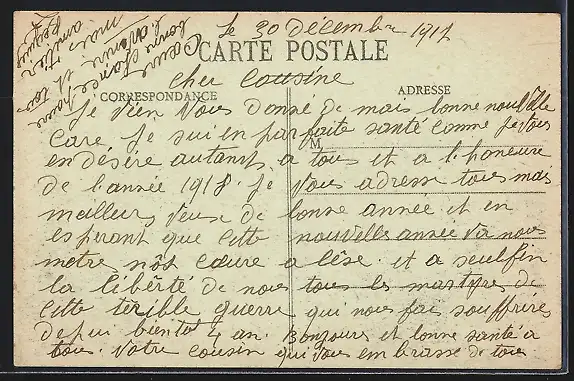 Le 30 Décembre 1917
CARTE POSTALE
Cher Cousine
CORRESPONDANCE
ADRESSE
Je vien vous donné de mais bonne nouvelle
Care Je sui en parfaite santé comme Je vous
M
en désire autant a tous et a l'honeure
de l'année 1918. Je vous adresse tous mais
meilleurs veux de bonne année et en
esperant que cette nouvelle année va nous
metre nôs cœure a l'èse. et a seulfin
la libêrté de nous tous les martyrs de
cette terible guerre qui nous fais souffrires
depui bientôt 4 an. Bonjours et bonne santé a
tous. Votre cousin qui vous embrasse de tous
Cœur
bonne chance pour
l'avenir et tous
mais
amitier